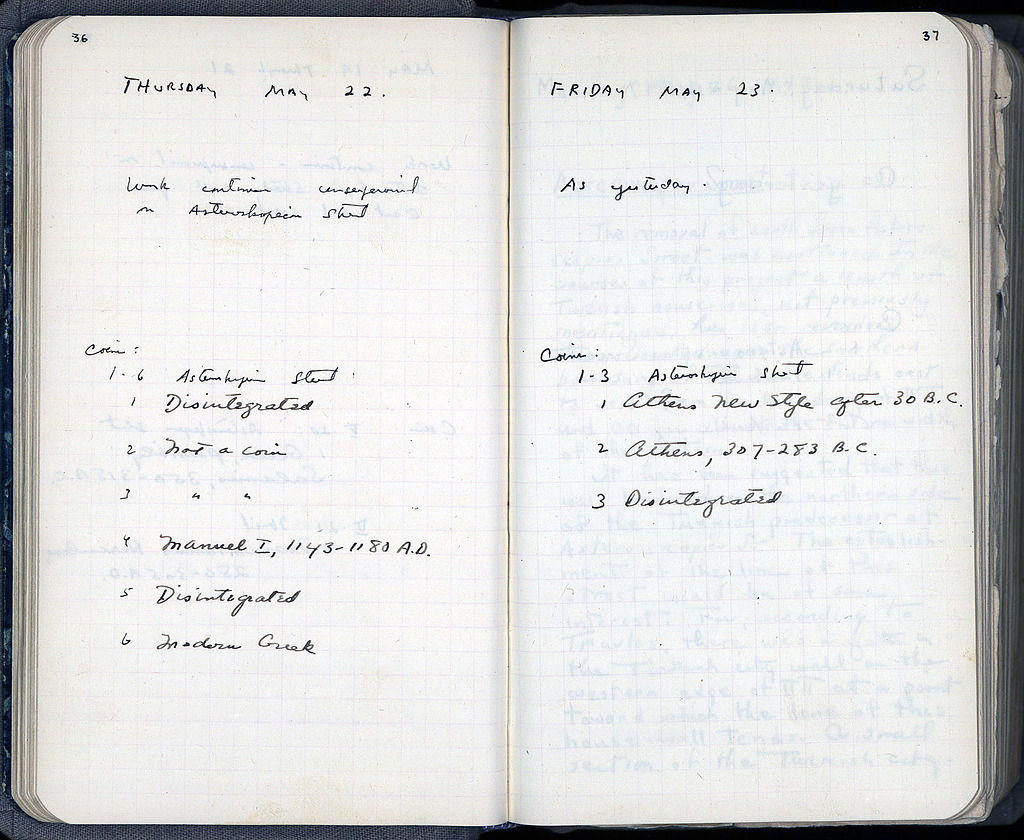 36
THURSDAY MAY 22.
Work continues unsupervised
on Asteroskopeion Street
Coins:
1-6 Asteroskopeion Street
1 Disintegrated
2 Not a coin
3 " "
4 Manuel I, 1143-1180 A.D.
5 Disintegrated
6 Modern Greek
37
FRIDAY MAY 23.
As yesterday.
Coins:
1-3 Asteroskopeion Street
1 Athens New Style after 30 B.C.
2 Athens, 307-283 B.C.
3 Disintegrated